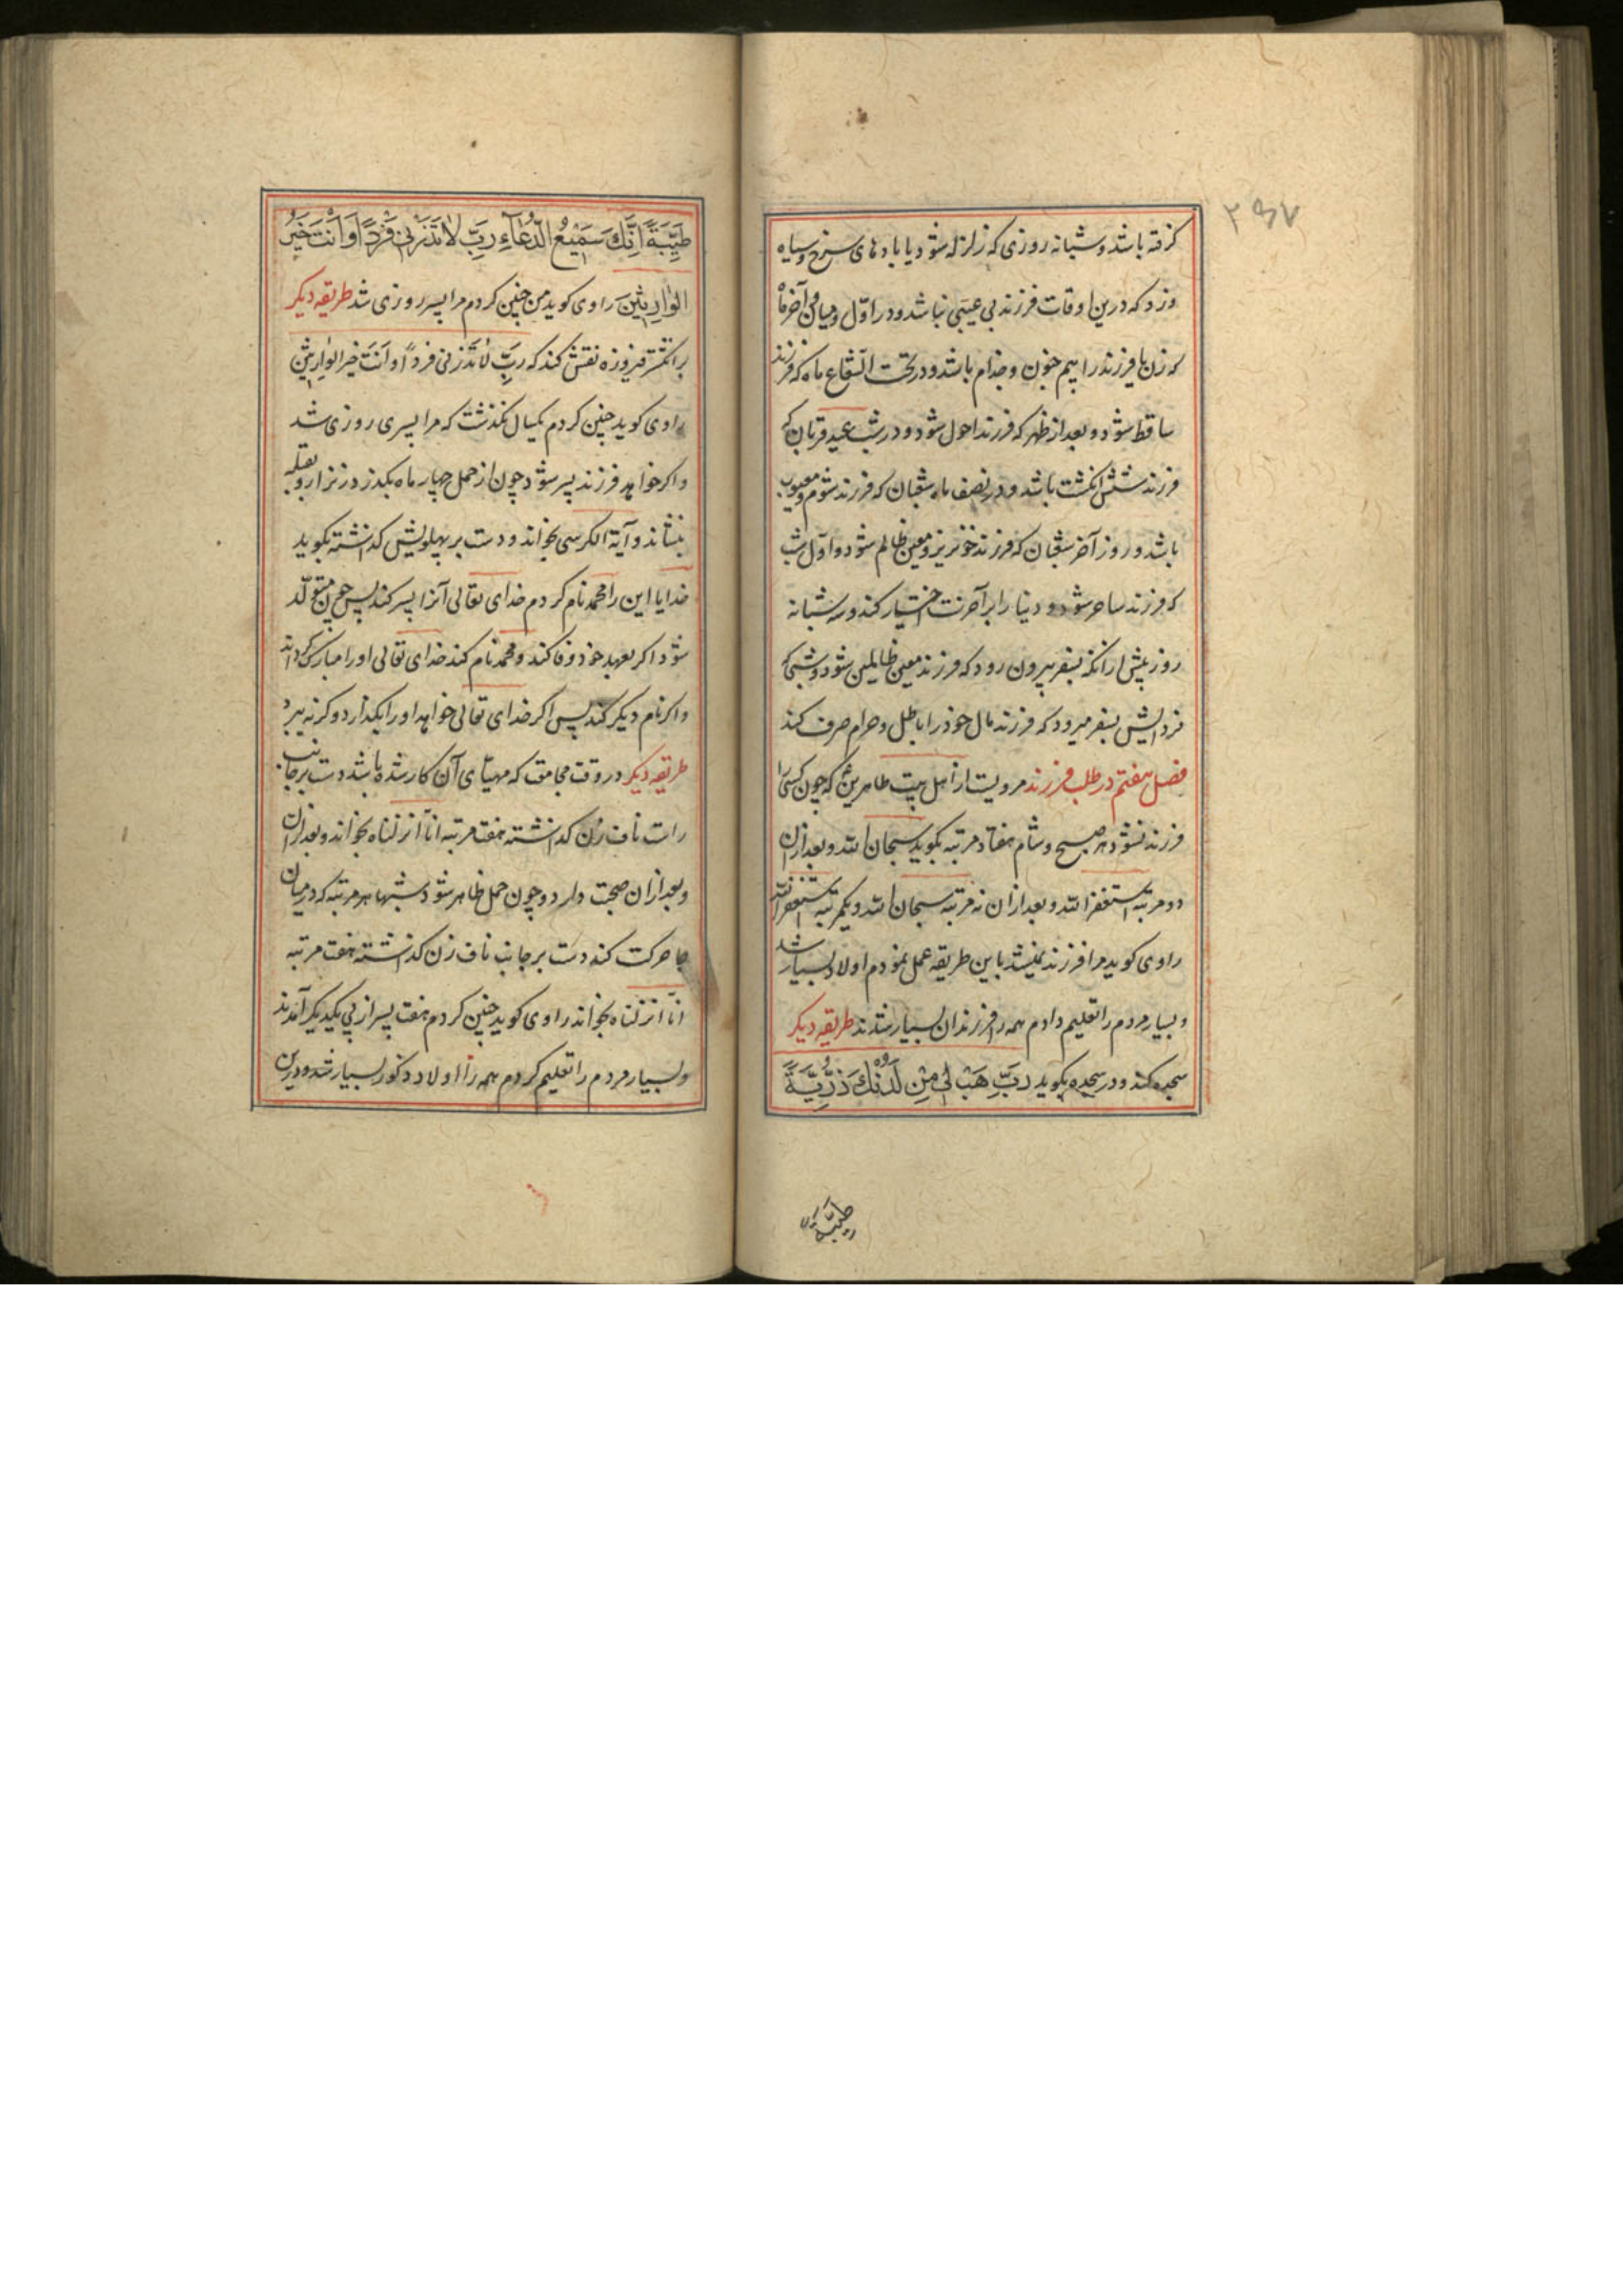 ۲۹۷
کرفته باشد و شبانه روزی که زلزله شود یا بادهای سرخ و سیاه
وزد که درین اوقات فرزند بی عیبی نباشد و در اوّل و میان و آخر ماه
که زن یا فرزند را بیم جنون و جذام باشد و در تحت الشعاع ماه که فرزند
ساقط شود و بعد از ظهر که فرزند احول شود و در شب عید قربان که
فرزند شش انکشت باشد و در نصف ماه شعبان که فرزند شوم و معیوب
باشد و روز آخر شعبان که فرزند خونریز و معین ظالم شود و اوّل شب
که فرزند ساحر شود و دنیا را بر آخرت اختیار کند و سه شبانه
روز پیش از آنکه بسفر بیرون رود که فرزند معین ظالمین شود و شبی که
فردایش بسفر میرود که فرزند مال خود را باطل و حرام صرف کند
فصل هفتم در طلب فرزند مرویست از اهل بیت طاهرین که چون کسی را
فرزند نشود هر صبح و شام هفتاد مرتبه بکوید سبحان الله و بعد از آن
دو مرتبه استغفر الله و بعد از آن نه مرتبه سبحان الله و یکمرتبه استغفر الله
راوی کوید مرا فرزند نمیشد باین طریقه عمل نمودم اولاد بسیار شد
و بسیار مردم را تعلیم دادم همه را فرزندان بسیار شدند طریقه دیکر
سجده کند و در سجده بکوید رَبِّ هَبْ لِی مِنْ لَدُنْكَ ذُرِّیَّةً
طیّبة
طَیِّبَةً اِنَّكَ سَمِیْعُ الدُّعَآءِ رَبِّ لاٰ تَذَرْنی فَرْداً وَ اَنْتَ خَیْرُ
الْوٰارِثینَ راوی کوید من چنین کردم مرا پسر روزی شد طریقه دیکر
بر انکشتر فیروزه نقش کند که رَبِّ لاٰ تَذَرْنی فرداً و اَنتَ خیر الوٰارِثینَ
راوی کوید چنین کردم یکسال نکذشت که مرا پسری روزی شد
و اکر خواهد فرزند پسر شود چون از حمل چهار ماه بکذرد زنرا رو بقبله
بنشاند و آیة الکرسی بخواند و دست بر پهلویش کذاشته بکوید
خدایا این را محمد نام کردم خدای تعالی آنرا پسر کند پس چون متولّد
شود اکر بعهد خود وفا کند و محمد نام کند خدای تعالی او را مبارک کرداند
و اکر نام دیکر کند پس اکر خدای تعالی خواهد او را بکذارد و کرنه ببرد
طریقه دیکر در وقت مجامعت که مهیّای آن کار شده باشد دست بر جانب
راست ناف زن کذاشته هفت مرتبه انّا انزلناه بخواند و بعد از آن
و بعد از آن صحبت دارد و چون حمل ظاهر شود شبها هر مرتبه که در میان
جا حرکت کند دست بر جانب ناف زن کذاشته هفت مرتبه
انّا انزلناه بخواند راوی کوید چنین کردم هفت پسر از پی یکدیکر آمدند
و بسیار مردم را تعلیم کردم همه را اولاد ذکور بسیار شد و درین